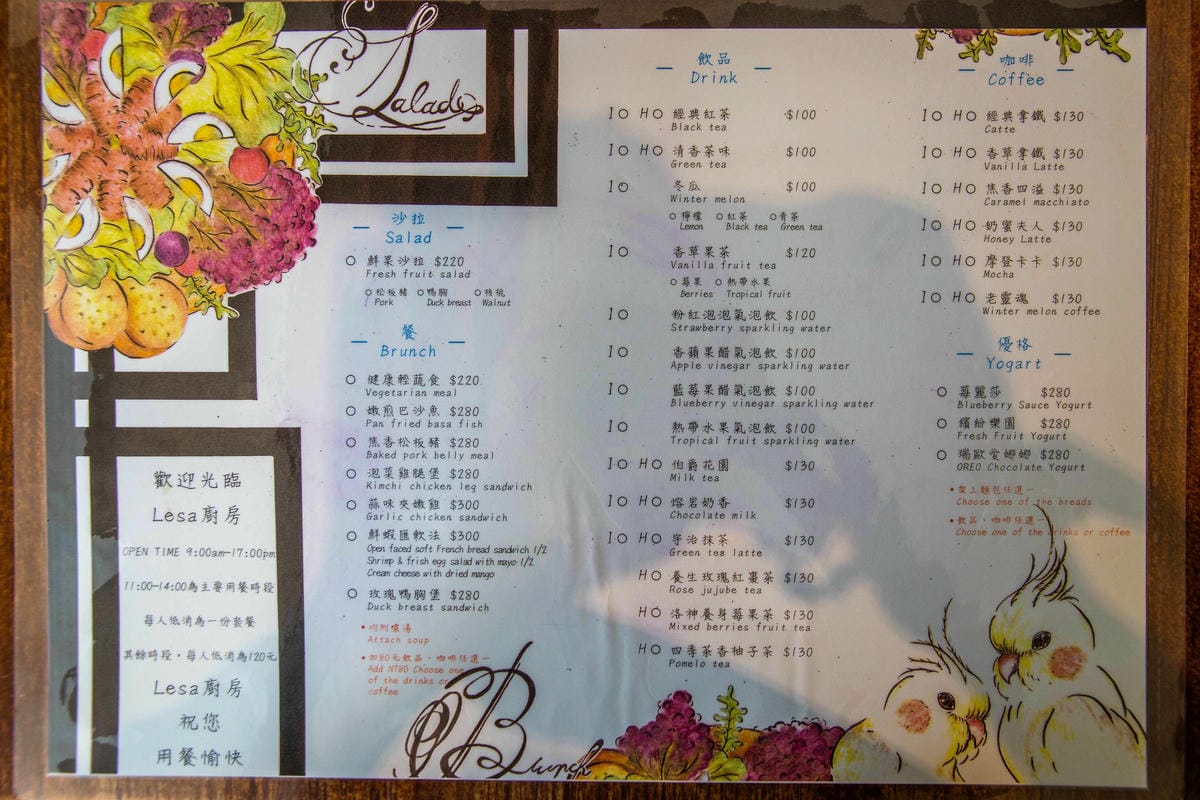 Salades
沙拉
Salad
○ 鮮果沙拉 $220
Fresh fruit salad
○松板豬 ○鴨胸 ○核桃
Pork Duck breast Walnut
餐
Brunch
○ 健康輕蔬食 $220
Vegetarian meal
○ 嫩煎巴沙魚 $280
Pan fried basa fish
○ 焦香松板豬 $280
Baked pork belly meal
○ 泡菜雞腿堡 $280
Kimchi chicken leg sandwich
○ 蒜味夾嫩雞 $300
Garlic chicken sandwich
○ 鮮蝦匯軟法 $300
Open faced soft French bread sandwich 1/2
Shrimp & frish egg salad with mayo 1/2
Cream cheese with dried mango
○ 玫瑰鴨胸堡 $280
Duck breast sandwich
•均附濃湯
Attach soup
•加80元飲品、咖啡任選一
Add NT80 Choose one
of the drinks or
coffee
Brunch
歡迎光臨
Lesa廚房
OPEN TIME 9:00am-17:00pm
11:00-14:00為主要用餐時段
每人低消為一份套餐
其餘時段，每人低消為120元
Lesa廚房
祝您
用餐愉快
飲品
Drink
I○ H○ 經典紅茶 $100
Black tea
I○ H○ 清香茶味 $100
Green tea
I○ 冬瓜 $100
Winter melon
○檸檬 ○紅茶 ○青茶
Lemon Black tea Green tea
I○ 香草果茶 $120
Vanilla fruit tea
○莓果 ○熱帶水果
Berries Tropical fruit
I○ 粉紅泡泡氣泡飲 $100
Strawberry sparkling water
I○ 香蘋果醋氣泡飲 $100
Apple vinegar sparkling water
I○ 藍莓果醋氣泡飲 $100
Blueberry vinegar sparkling water
I○ 熱帶水果氣泡飲 $100
Tropical fruit sparkling water
I○ H○ 伯爵花園 $130
Milk tea
I○ H○ 熔岩奶香 $130
Chocolate milk
I○ H○ 宇治抹茶 $130
Green tea latte
H○ 養生玫瑰紅棗茶 $130
Rose jujube tea
H○ 洛神養身莓果茶 $130
Mixed berries fruit tea
H○ 四季茶香柚子茶 $130
Pomelo tea
咖啡
Coffee
I○ H○ 經典拿鐵 $130
Catte
I○ H○ 香草拿鐵 $130
Vanilla Latte
I○ H○ 焦香四溢 $130
Caramel macchiato
I○ H○ 奶蜜夫人 $130
Honey Latte
I○ H○ 摩登卡卡 $130
Mocha
I○ H○ 老靈魂 $130
Winter melon coffee
優格
Yogurt
○ 莓麗莎 $280
Blueberry Sauce Yogurt
○ 繽紛樂園 $280
Fresh Fruit Yogurt
○ 瑞歐愛娜娜 $280
OREO Chocolate Yogurt
•架上麵包任選一
Choose one of the breads
•飲品、咖啡任選一
Choose one of the drinks or coffee